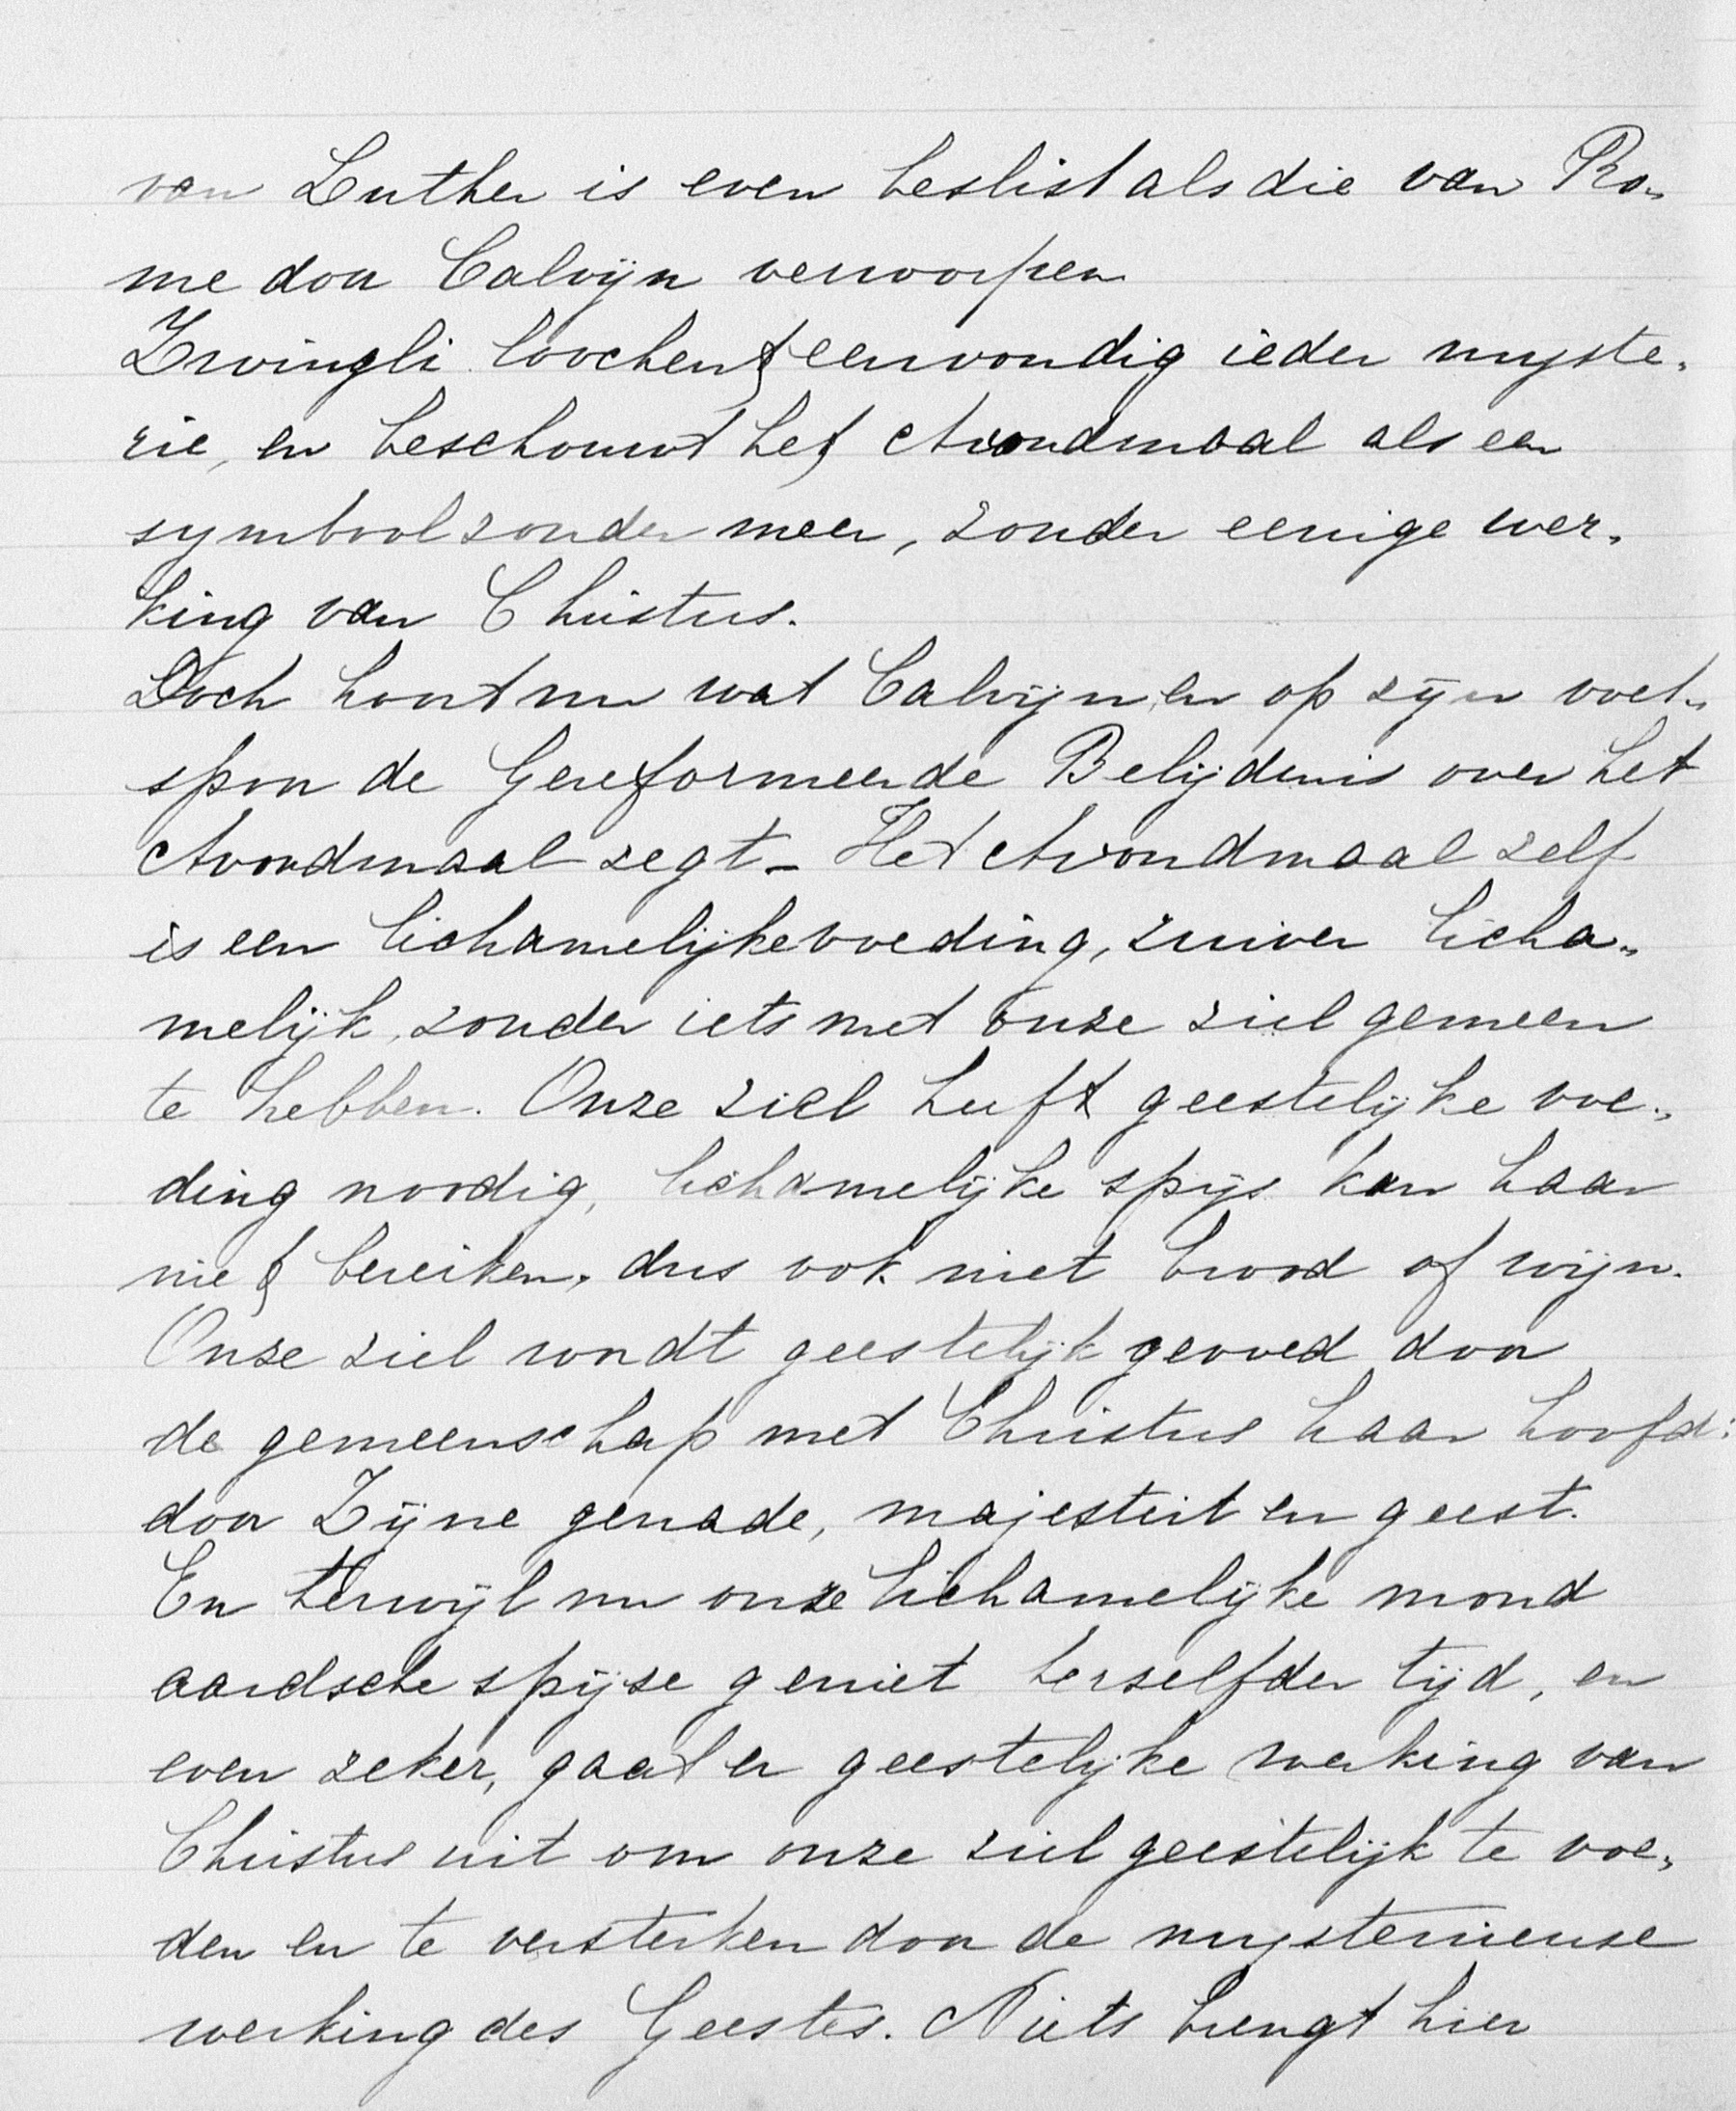 van Luther is even beslist als die van Ro-
me door Calvijn verworpen
Zwingli loochent eenvoudig ieder myste-
rie, en beschouwt het Avondmaal als een
symbool zonder meer, zonder eenige wer-
king van Christus.
Doch hoort nu wat Calvijn, en op zijn voet-
spoor de Gereformeerde Belijdenis over het
Avondmaal zegt - Het Avondmaal zelf
is een lichamelijke voeding, zuiver licha-
melijk, zonder iets met onze ziel gemeen
te hebben. Onze ziel heeft geestelijke voe-
ding noodig, lichamelijke spijs kan haar
niet bereiken, dus ook niet brood of wijn.
Onze ziel wordt geestelijk gevoed door
de gemeenschap met Christus haar hoofd:
door Zijne genade, majesteit en geest.
En terwijl nu onze lichamelijke mond
aardsche spijze geniet terzelfder tijd, en
even zeker, gaat er geestelijke werking van
Christus uit om onze ziel geestelijk te voe-
den en te versterken door de mysterieuse
werking des Geestes. Niets brengt hier